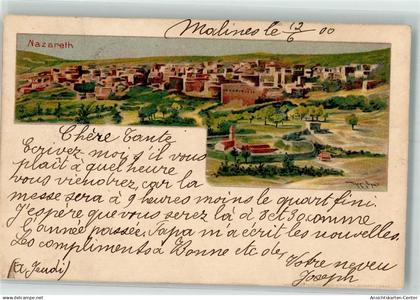 Nazareth
Malines le 12/6 00
Chère Tante
Ecrivez moi s'il vous
plait à quel heure
vous viendrez, car la
messe sera à 9 heures moins le quart fini.
J'espère que vous serez là à 8 et 30 comme
l'année passée, Papa m'a écrit les nouvelles.
Les compliments à Bonne etc de
Votre neveu
(A Jeudi)
Joseph
www.ansichtskarten-center.de